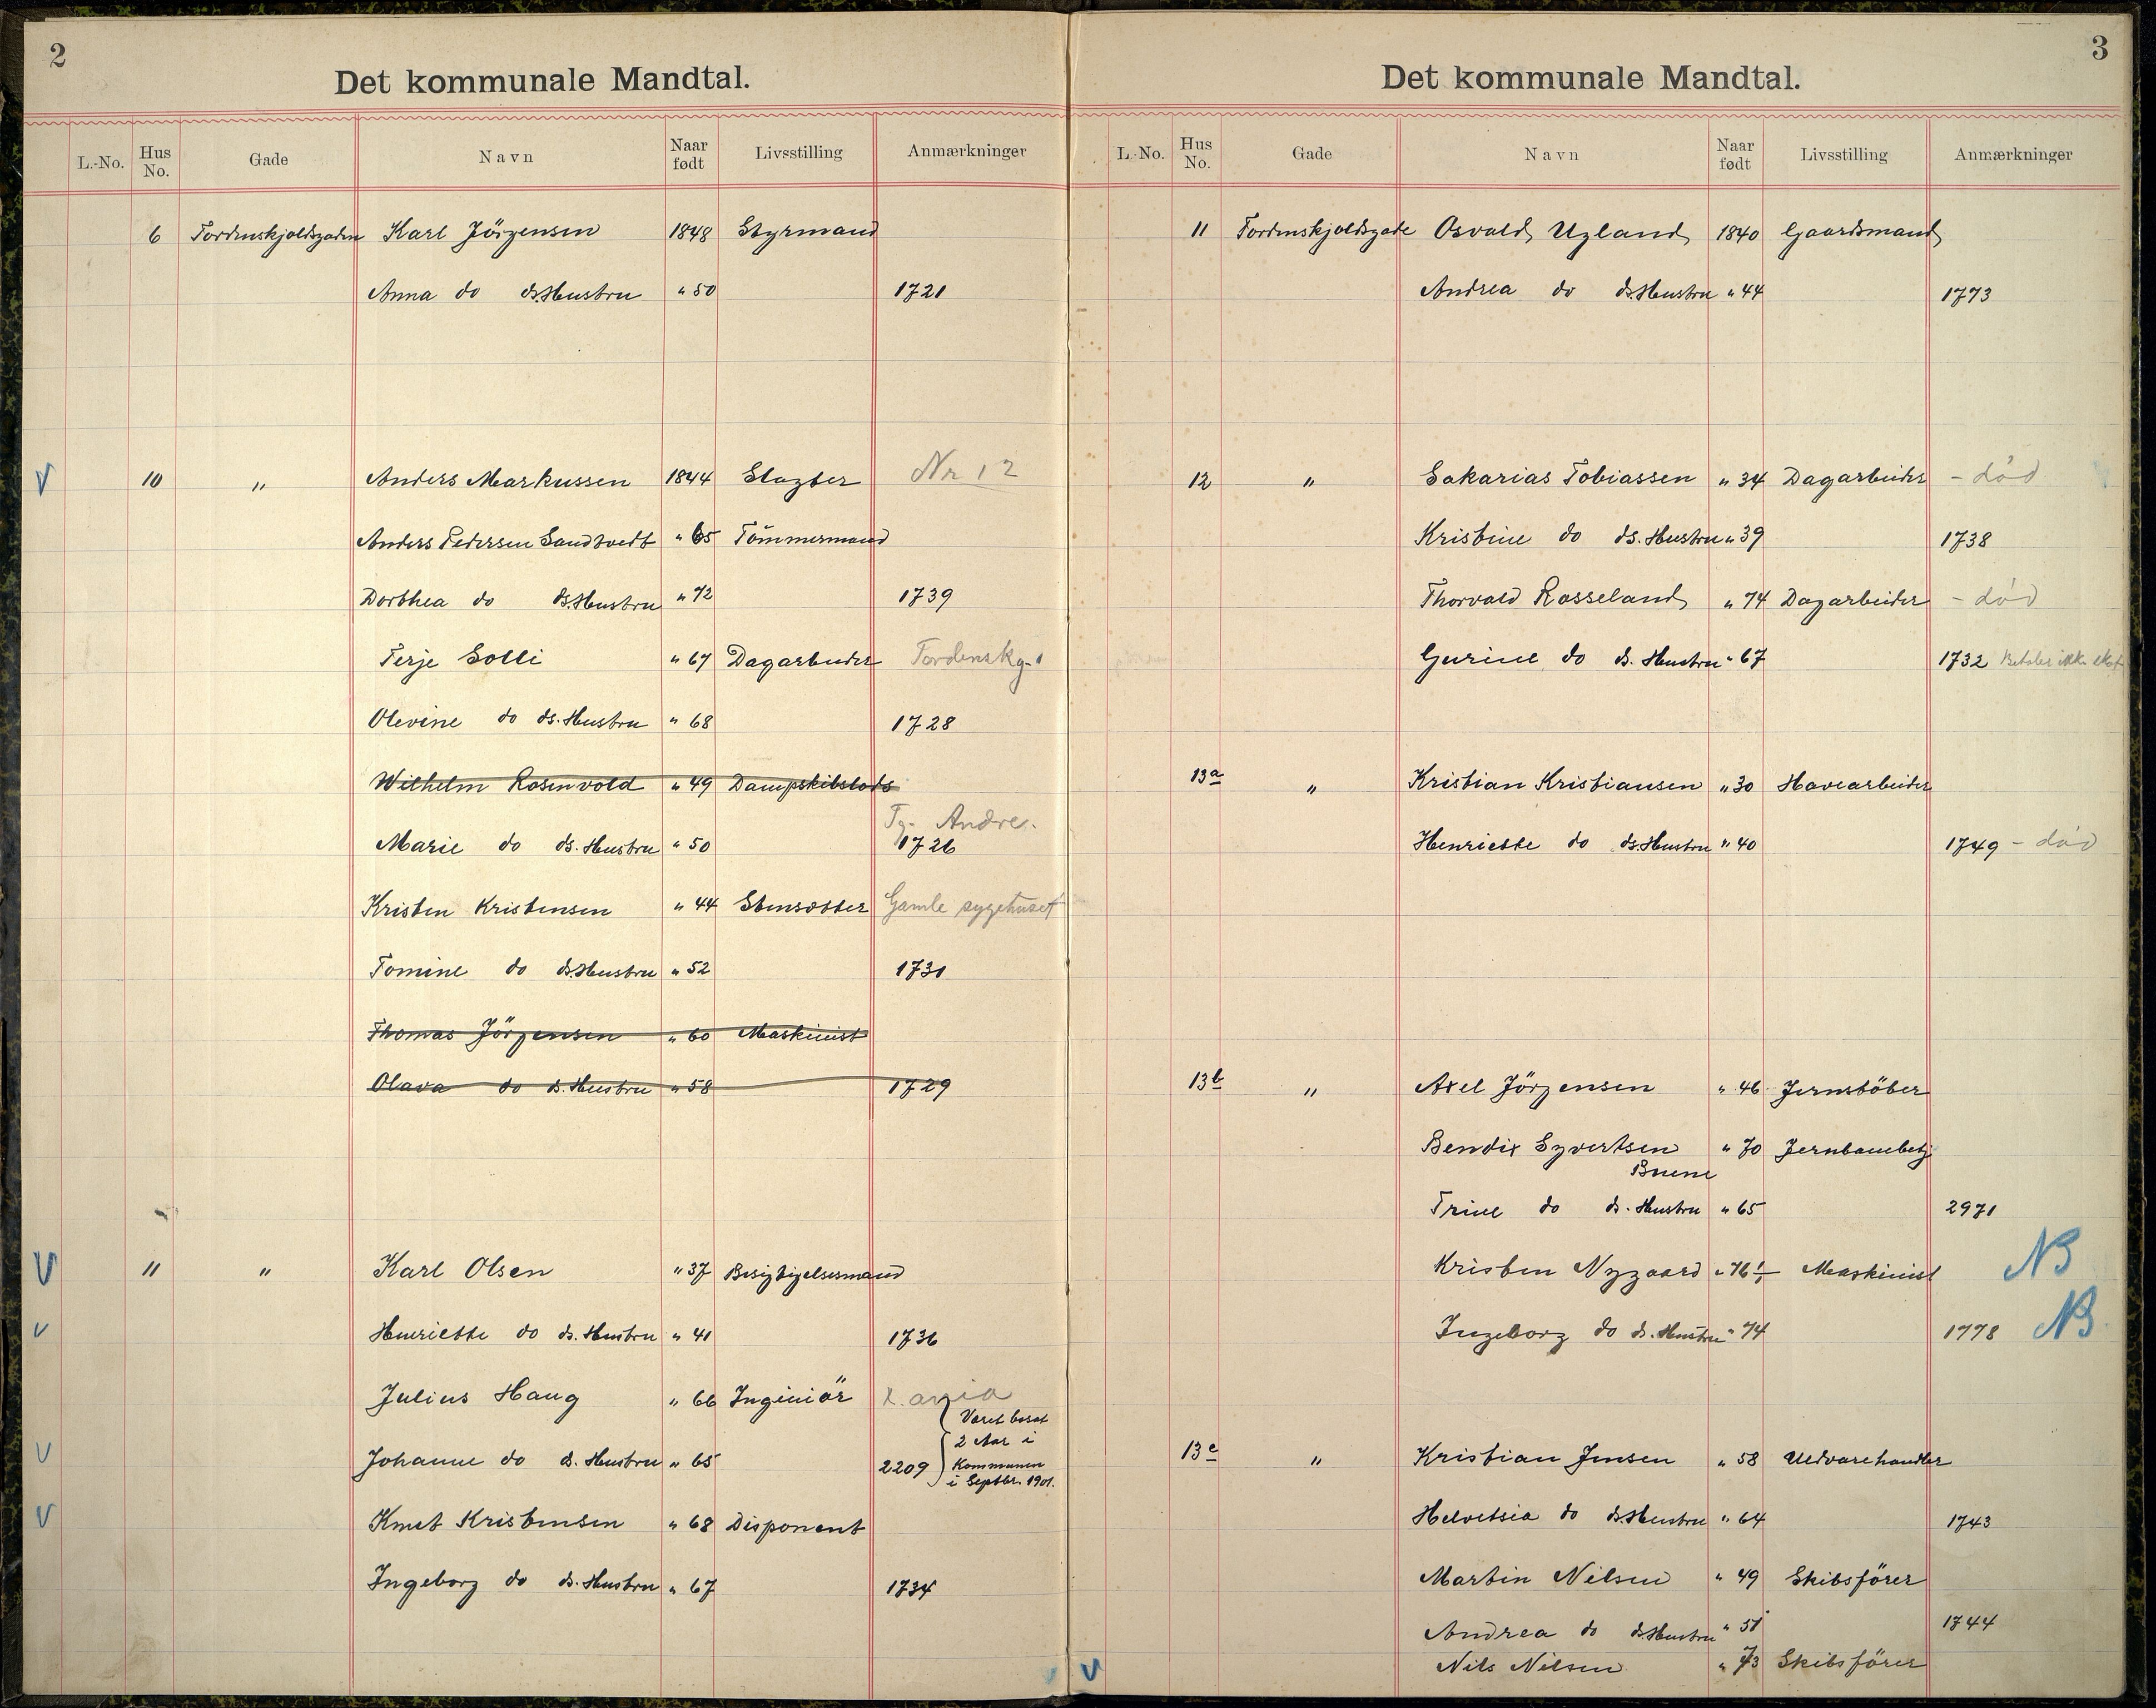 2
Det kommunale Mandtal.
L.-No. Hus No. Gade Navn Naar født Livsstilling Anmærkninger
6 Tordenskjoldsgaden Karl Jörgensen 1848 Styrmand
Anna do ds. Hustru " 50 1721
V 10 " Anders Markussen 1844 Slagter Nr 12
Anders Pedersen Sandtvedt " 65 Tömmermand
Dorthea do ds. Hustru " 72 1739
Terje Solli " 67 Dagarbeider Tordenskg. 1
Olevine do ds. Hustru " 68 1728
Wilhelm Rosenvold " 49 Dampskibslods
Marie do ds. Hustru " 50 Tg. Andre. 1726
Kristen Kristensen " 44 Stensætter Gamle sygehuset
Tomine do ds. Hustru " 52 1731
Thomas Jörgensen " 60 Maskinist
Olava do ds. Hustru " 58 1729
V 11 " Karl Olsen " 37 Besigtigelsesmand
V Henriette do ds. Hustru " 41 1736
Julius Haug " 66 Ingeniör
V Johanne do ds. Hustru " 65 2209 Været bosat
2 Aar i
Kommunen
i Septbr. 1901.
V Knut Kristensen " 68 Disponent
Ingeborg do ds. Hustru " 67 1734
3
Det kommunale Mandtal.
L.-No. Hus No. Gade Navn Naar født Livsstilling Anmærkninger
11 Tordenskjoldsgade Osvald Ugland 1840 Gaardsmand
Andrea do ds. Hustru " 44 1773
12 " Sakarias Tobiassen " 34 Dagarbeider - död
Kristine do ds. Hustru " 39 1738
Thorvald Rosseland " 74 Dagarbeider - död
Gurine do ds. Hustru " 67 1732 Betaler ikke skat
13a " Kristian Kristiansen " 30 Havearbeider
Henriette do ds. Hustru " 40 1749 - död
13b " Axel Jörgensen " 46 Jernstöber
Bendix Syvertsen " 70 Jernbanebetj
Buene
Trine do ds. Hustru " 65 2971
Kristen Nygaard " 76 Maskinist NB
Ingeborg do ds. Hustru " 74 1778 NB
13c " Kristian Jensen " 58 Uldvarehandler
Helvetsia do ds. Hustru " 64 1743
Martin Nilsen " 49 Skibsförer
Andrea do ds. Hustru " 51 1744
V Nils Nilsen " 73 Skibsförer